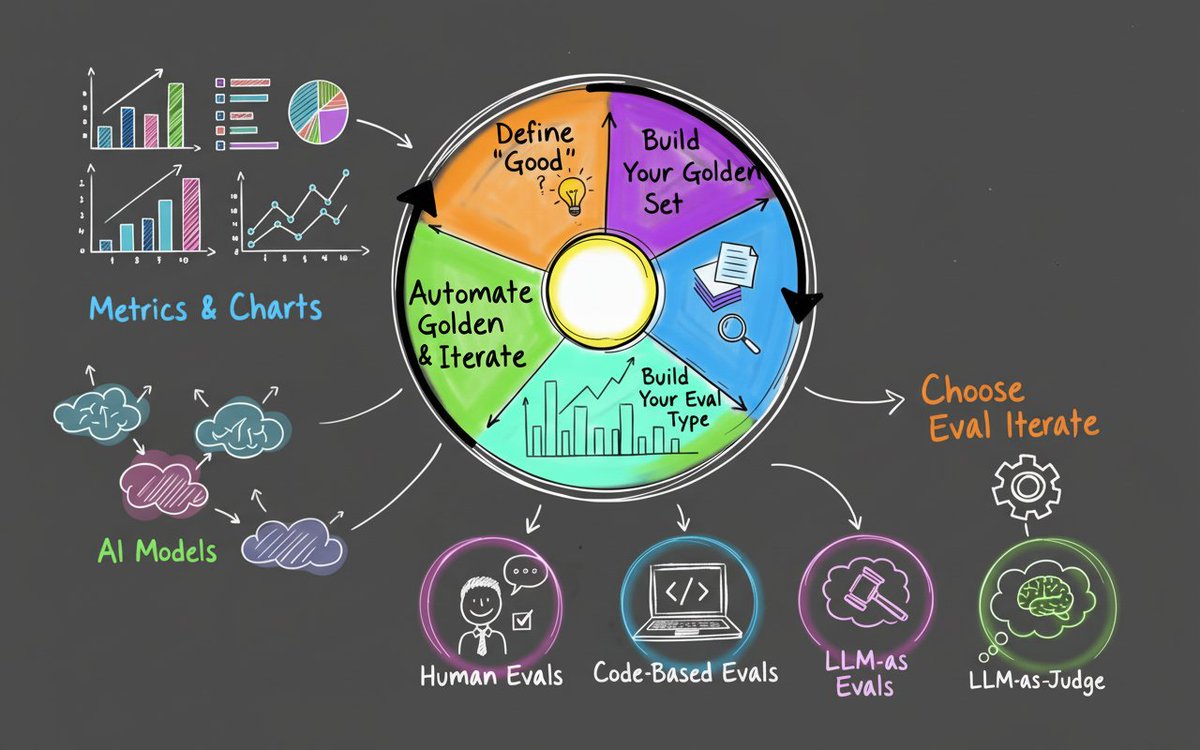 Define
"Good"
?
Build
Your Golden
Set
Metrics & Charts
Automate
Golden
& Iterate
Build
Your Eval
Type
Choose
Eval Iterate
AI Models
</>
Human Evals
Code-Based Evals
LLM-as
Evals
LLM-as-Judge